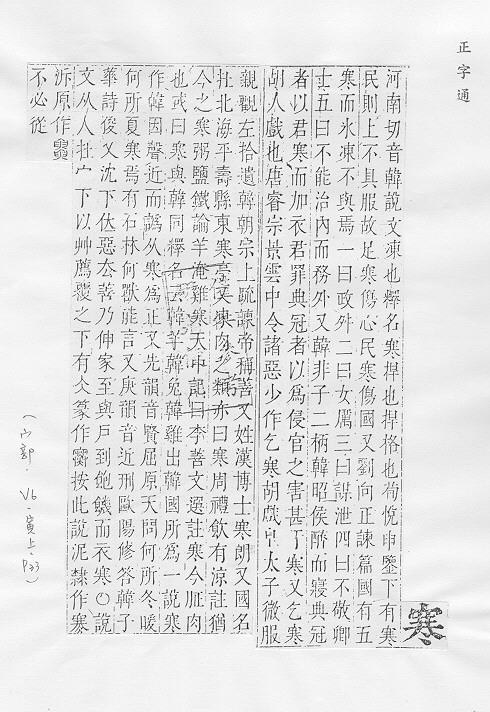 正字通
寒
河南切音韓說文凍也釋名寒捍也捍格也荀悅申鑒下有寒
民則上不具服故足寒傷心民寒傷國又劉向正諫篇國有五
寒而氷凍不與焉一曰政外二曰女厲三曰謀泄四曰不敬卿
士五曰不能治內而務外又韓非子二柄韓昭侯醉而寢典冠
者以君寒而加衣君罪典冠者以為侵官之害甚于寒又乞寒
胡人戲也唐睿宗景雲中令諸惡少作乞寒胡戲皇太子微服
親觀左拾遺韓朝宗上疏諫帝稱善又姓漢博士寒朗又國名
在北海平壽縣東寒亭又凍肉之類亦曰寒周禮飲有涼註猶
今之寒粥鹽鐵論羊淹雞寒天中記曰李善文選註寒今肉
也或曰寒與韓同釋名云韓羊韓兔韓雞出韓國所為一說寒
作韓因聲近而譌从寒為正又先韻音賢屈原天問何所冬暖
何所夏寒焉有石林何獸能言又庚韻音近刑歐陽修答韓子
華詩後又沈下伏惡夲善乃伸家至與戶到飽饑而衣寒〇說
文从人在宀下以艸薦覆之下有仌篆作按此說泥隸作寒
泝原作
不必從
(宀部. V6-寅上. P33)